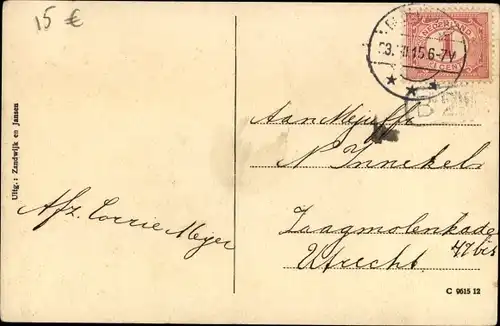 15 €
NEDERLAND
1
CENT
3. 15 6-7V
Aan Mejuffr
N Innekel
Zaagmolenkade
47 bis
Utrecht
Afz. Corrie Meijer
Uitg.: Zandwijk en Jansen
C 9615 12